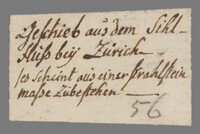 Geschieb aus dem Sihl-
fluß beÿ Zürich.
es scheint aus einer Strahlstein
maße zu bestehen
56